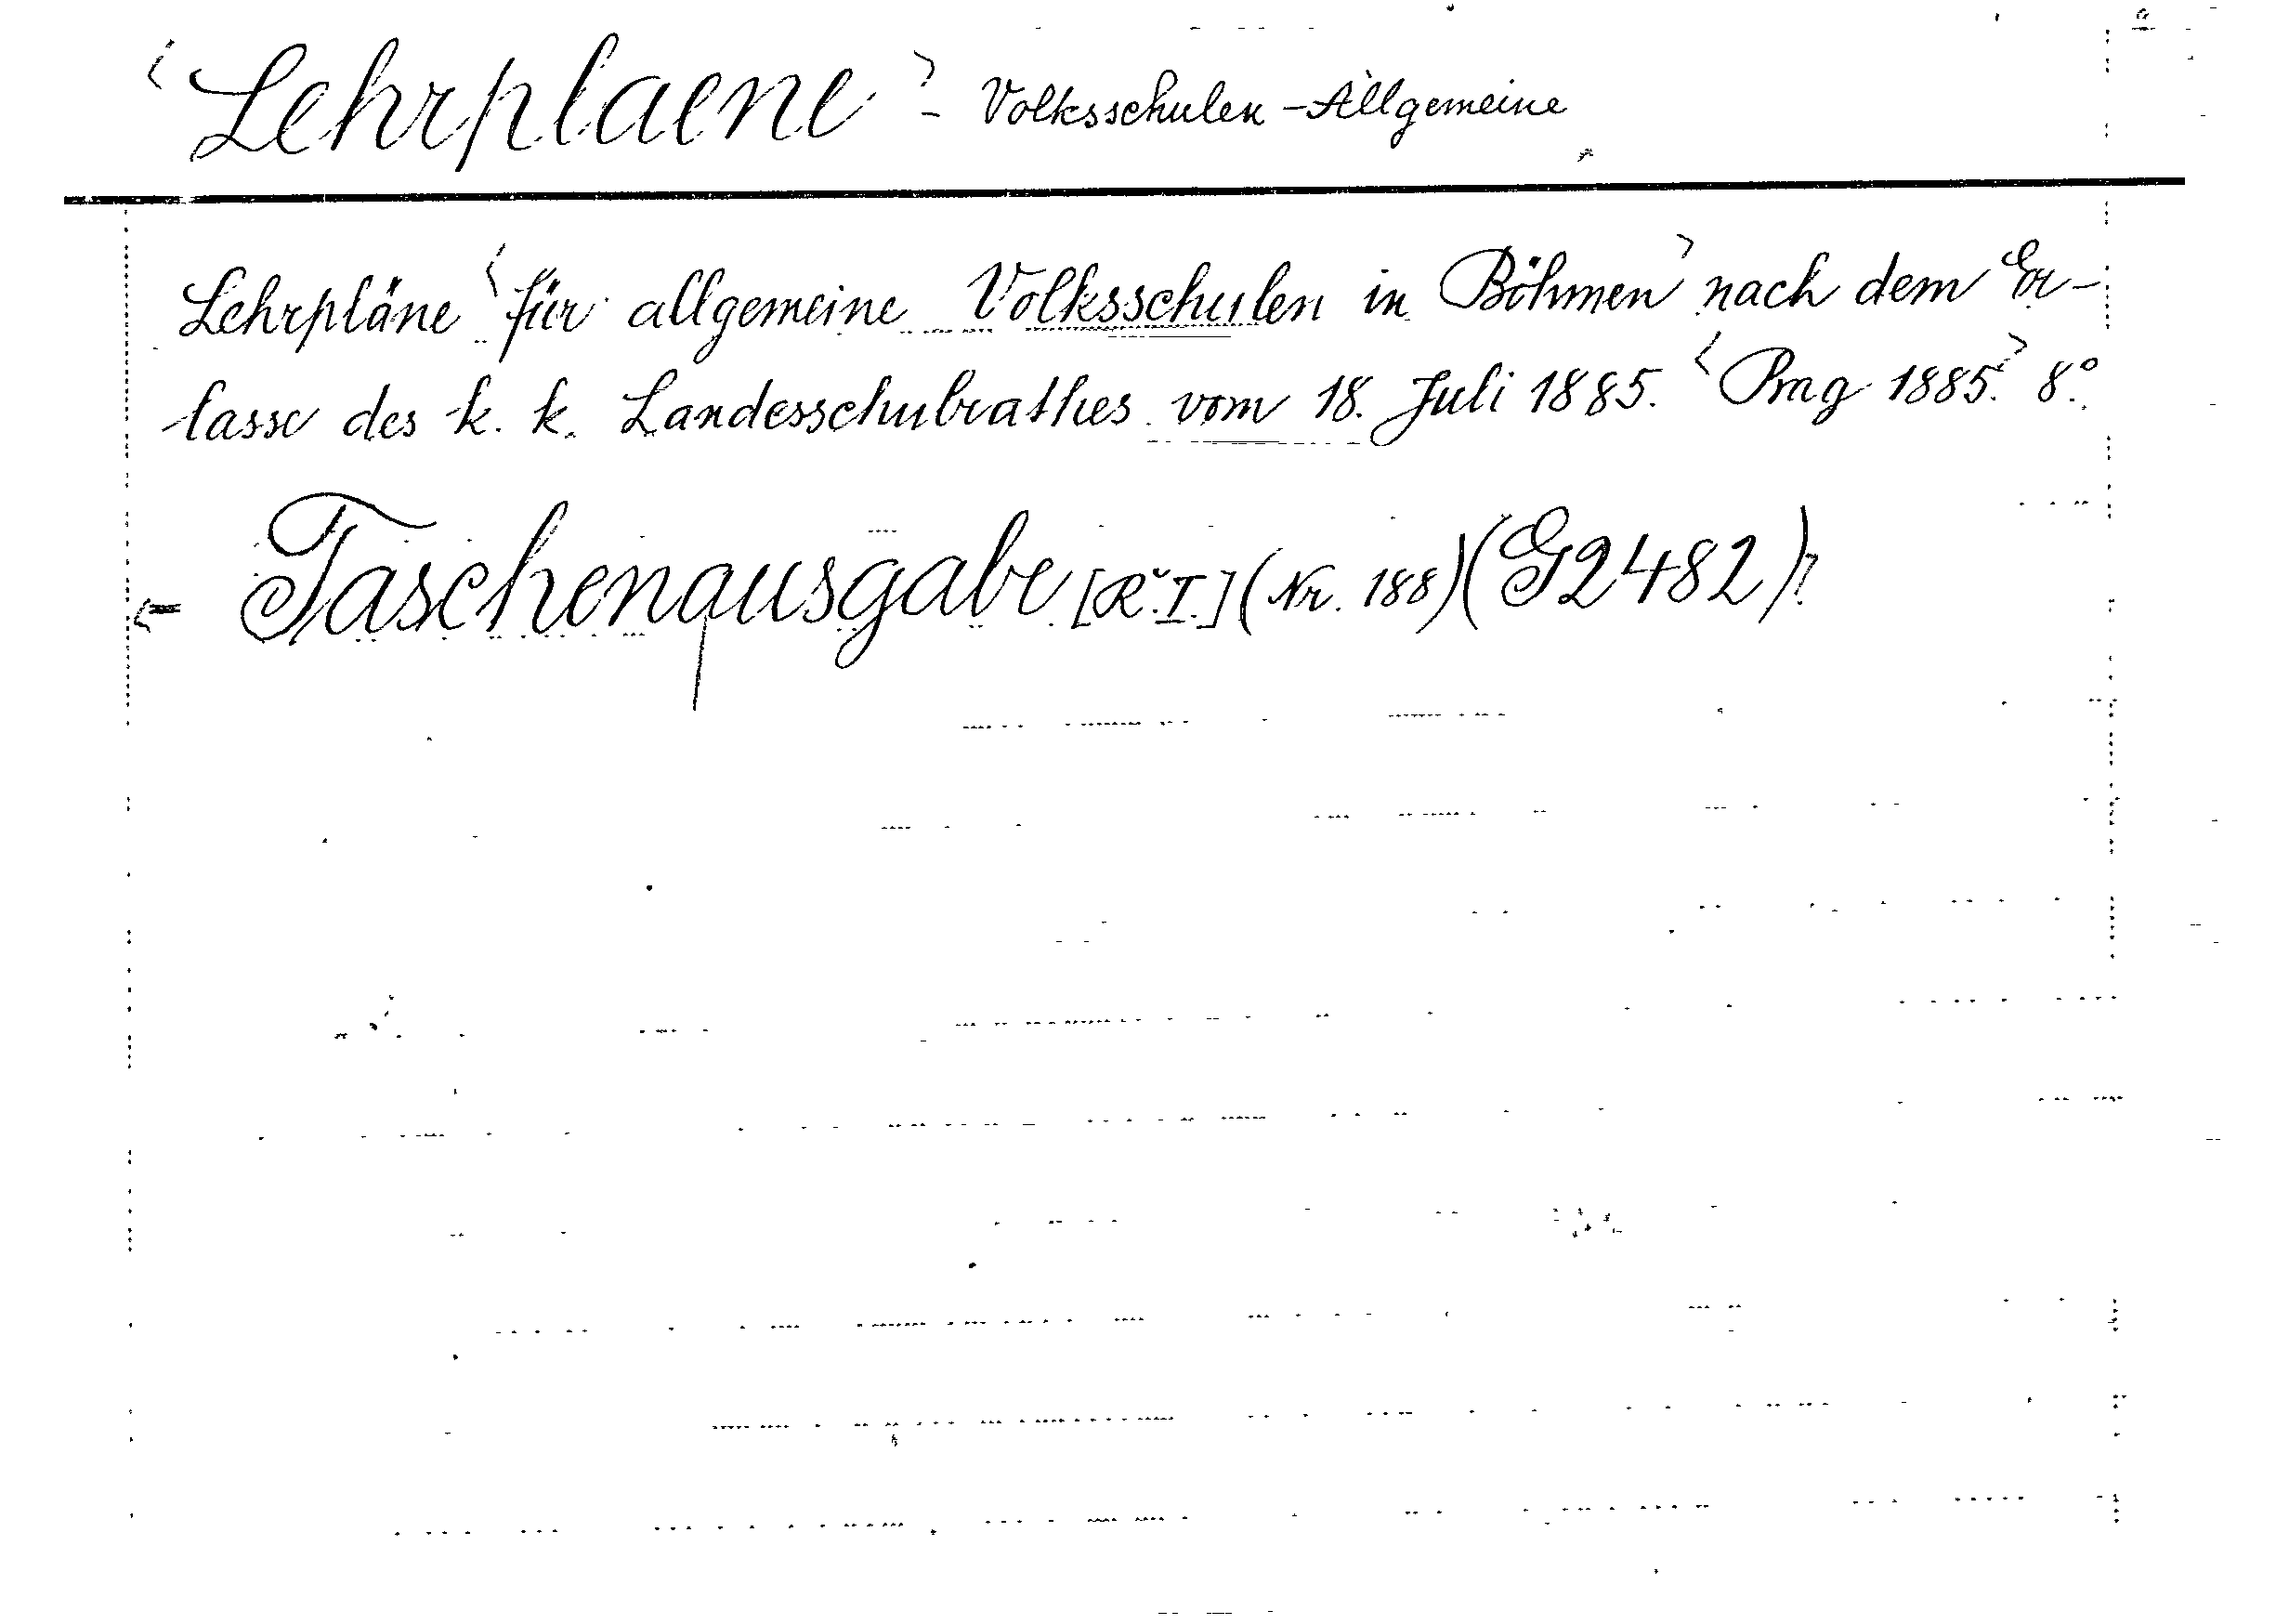 <Lehrplaene> - Volksschulen - Allgemeine
Lehrpläne <für allgemeine Volksschulen in Böhmen> nach dem Er-
lasse des k. k. Landesschulrathes vom 18. Juli 1885. <Prag 1885.> 8°.
<= Taschenausgabe [R. I.] (Nr. 188) (G2482)>